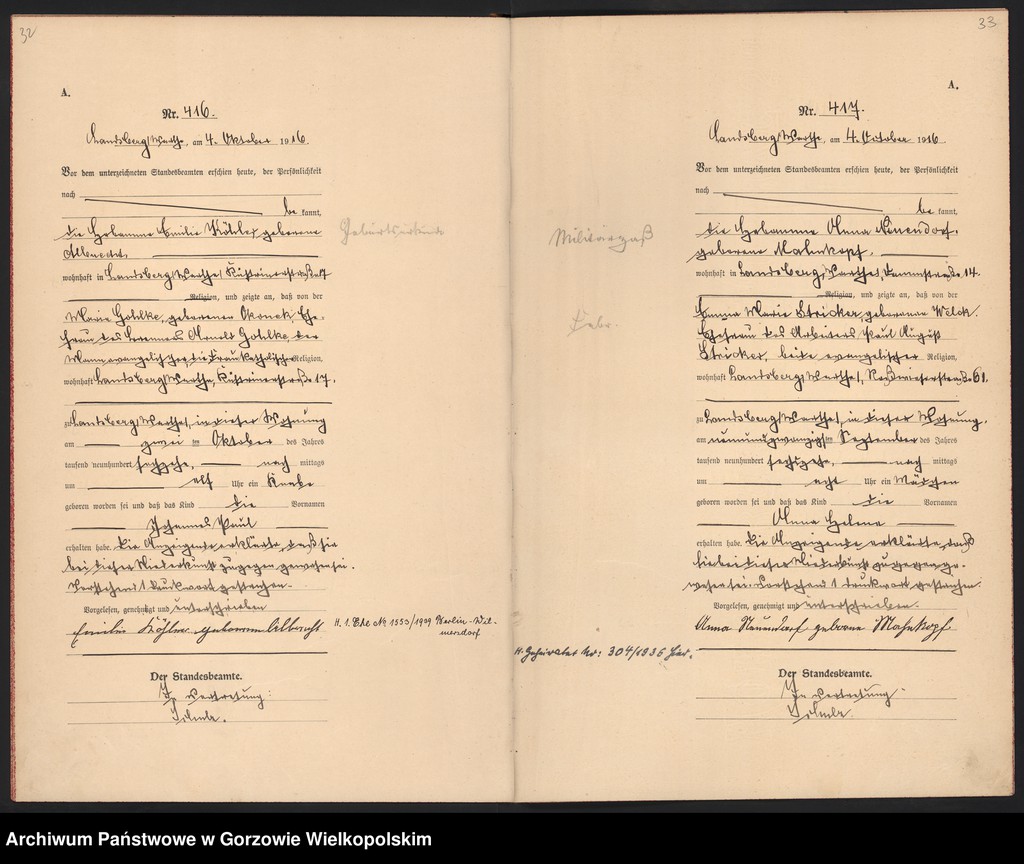 32
A.
Nr. 416.
Landsberg/Warthe, am 4. Oktober 1916.
Vor dem unterzeichneten Standesbeamten erschien heute, der Persönlichkeit
nach
be kannt,
die Hebamme Emilie Köhler geborene
Albrecht,
wohnhaft in Landsberg/Warthe, Küstrinerstraße
Religion, und zeigte an, daß von der
Marie Gohlke, geborenen Okonek, Ehe-
frau des Arnold Gohlke, der
Mann evangelischer, die Frau katholischer Religion,
wohnhaft Landsberg/Warthe, Küstrinerstraße 17,
zu Landsberg/Warthe, in dieser Wohnung
am zwei ten Oktober des Jahres
tausend neunhundert sechzehn, nach mittags
um elf Uhr ein Knabe
geboren worden sei und daß das Kind die Vornamen
Johannes Paul
erhalten habe. Die Anzeigende erklärte, daß sie
bei dieser Niederkunft zugegen gewesen sei.
Vorstehend 1 Druckwort gestrichen.
Vorgelesen, genehmigt und unterschrieben
Emilie Köhler geborene Albrecht
Der Standesbeamte.
In Vertretung:
Geburtsurkunde
H. 1. Ehe No 1553/1939 Berlin-Wil-
mersdorf
33
A.
Nr. 417.
Landsberg/Warthe, am 4. Oktober 1916.
Vor dem unterzeichneten Standesbeamten erschien heute, der Persönlichkeit
nach
be kannt,
die Hebamme Anna Neuendorf,
geborene Mahnkopf,
wohnhaft in Landsberg/Warthe, Dammstraße 14.
Religion, und zeigte an, daß von der
Emma Marie Stricker, geborenen
Ehefrau des Arbeiters Paul August
Stricker, beide evangelischer Religion,
wohnhaft Landsberg/Warthe, Roßwieserstraße 61,
zu Landsberg/Warthe, in dieser Wohnung,
am neunundzwanzigsten September des Jahres
tausend neunhundert sechzehn, nach mittags
um acht Uhr ein Mädchen
geboren worden sei und daß das Kind die Vornamen
Anna Helene
erhalten habe. Die Anzeigende erklärte, daß
sie bei dieser Niederkunft zugegen ge-
wesen sei. Vorstehend 1 Druckwort gestrichen.
Vorgelesen, genehmigt und unterschrieben.
Anna Neuendorf geborne Mahnkopf
Der Standesbeamte.
In Vertretung
Militärpaß
Febr.
H. Geheiratet Nr: 304/1936 hier.
Archiwum Państwowe w Gorzowie Wielkopolskim